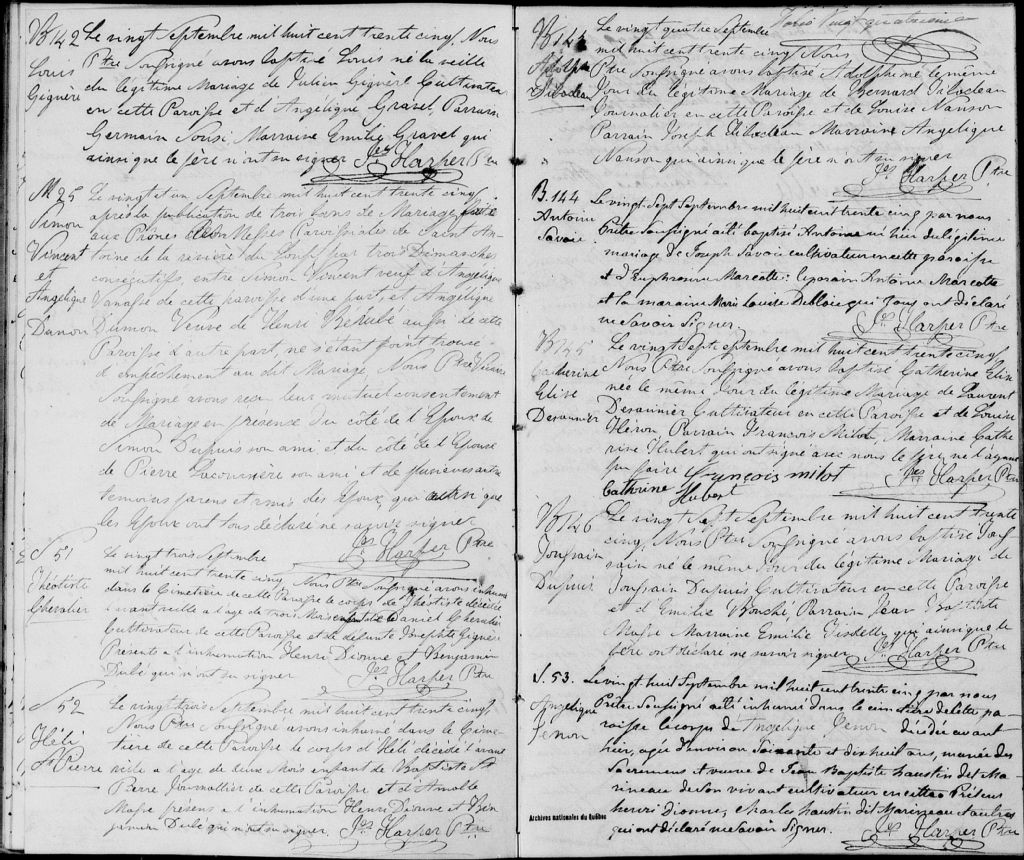 B 142
Louis
Gignère
Le vingt Septembre mil huit cent trente cinq, Nous
Ptre Soussigné avons baptisé Louis né la veille
du légitime Mariage de Julien Gignère Cultivateur
en cette Paroisse et d'Angélique Gravel, Parrain
Germain Marraine Emilie Gravel qui
ainsi que le père n'ont su signer Jes Harper Ptre
M 25
Simon
Vincent
et
Angélique
Dumon
Le vingt et un Septembre mil huit cent trente cinq
après la publication de trois bans de Mariage faite
aux Prônes des Messes Paroissiales de Saint An-
toine de la rivière du Loup par trois Dimanches
consécutifs, entre Simon Vincent veuf d'Angélique
de cette paroisse d'une part, et Angélique
Dumon Veuve de Henri Bérubé aussi de cette
Paroisse d'autre part, ne s'étant point trouvé
d'empêchement au dit Mariage, Nous Ptre Vicaire
Soussigné avons reçu leur mutuel consentement
de Mariage en présense du côté de l'Epoux de
Simon Dupuis son ami et du côté de l'Epouse
de Pierre Lacoursière son ami et de plusieurs autres
temoins parens et amis des Epoux, qui ainsi que
les Epoux ont tous déclaré ne savoir signer
Jes Harper Ptre
S 51
Théotiste
Chevalier
Le vingt trois Septembre
mil huit cent trente cinq, Nous Ptre Soussigné avons inhumé
dans le Cimetière de cette Paroisse le corps de Théotiste décédée
l'avant veille a l'age de trois Mois enfant de Daniel Chevalier
Cultivateur de cette Paroisse et de défunte Josephte Gignère
Présents a l'inhumation Henri Dionne et Benjamin
Dubé qui n'ont su signer Jes Harper Ptre
S 52
Héli
St Pierre
Le vingt trois Septembre mil huit cent trente cinq,
Nous Ptre Soussigné avons inhumé dans le Cime-
tière de cette Paroisse le corps d'Héli décédé l'avant
veille a l'age de deux Mois enfant de Baptiste St
Pierre Journallier de cette Paroisse et d'
Masse présens a l'inhumation Henri Dionne et Ben
jamin Dubé qui n'ont su signer Jes Harper Ptre
Folio Vingt quatrième
B 143
Adolphe
Tibodeau
Le vingt quatre Septembre
mil huit cent trente cinq Nous
Ptre Soussigné avons baptisé Adolphe né le même
Jour du légitime Mariage de Bernard Tibodeau
Journalier en cette Paroisse et de Louise Nanson
Parrain Joseph Tibodeau Marraine Angélique
Nanson qui ainsi que le père n'ont su signer
Jes Harper Ptre
B. 144
Antoine
Savoie
Le vingt-Sept Septembre mil huit cent trente cinq par nous
Prêtre Soussigné a été baptisé Antoine né hier du légitime
mariage de Joseph Savoie cultivateur en cette paroisse
et d'Euphrosine Marcotte: le parain Antoine Marcotte
et la maraine Marie Louise qui tous ont déclaré
ne Savoir Signer.
Jes Harper Ptre
B 145
Catherine
Elise
Desaunier
Le vingt Sept Septembre mil huit cent trente cinq
Nous Ptre Soussigné avons baptisé Catherine Elise
née le même Jour du légitime Mariage de Laurent
Desaunier Cultivateur en cette Paroisse et de Louise
Héron Parrain François Milot, Marraine Cathe
rine Hubert qui ont signé avec nous le père ne l'ayant
pu faire François milot
Cathrine Hubert
Jes Harper Ptre
B 146
Toussain
Dupuis
Le vingt Sept Septembre mil huit cent trente
cinq, Nous Ptre Soussigné avons baptisé Tous
sain né le même Jour du légitime Mariage de
Toussain Dupuis Cultivateur en cette Paroisse
et d'Emilie Bouché, Parrain Jean Baptiste
Masse Marraine Emilie qui ainsi que le
père ont déclaré ne savoir signer Jes Harper Ptre
S. 53.
Angélique
Le vingt-huit Septembre mil huit cent trente cinq par nous
Prêtre Soussigné a été inhumé dans le cimetière de cette pa-
roisse le corps de Angélique décédée avant
hier, agée d'environ Soixante et dix huit ans, munie des
Sacremens et veuve de Jean Baptiste haustin dit Ma-
rineau de Son vivant cultivateur en ce lieu Présens
henri dionne, charles haustin dit Marineau et autres
qui ont déclaré ne Savoir Signer.
Jes Harper Ptre
Archives nationales du Québec